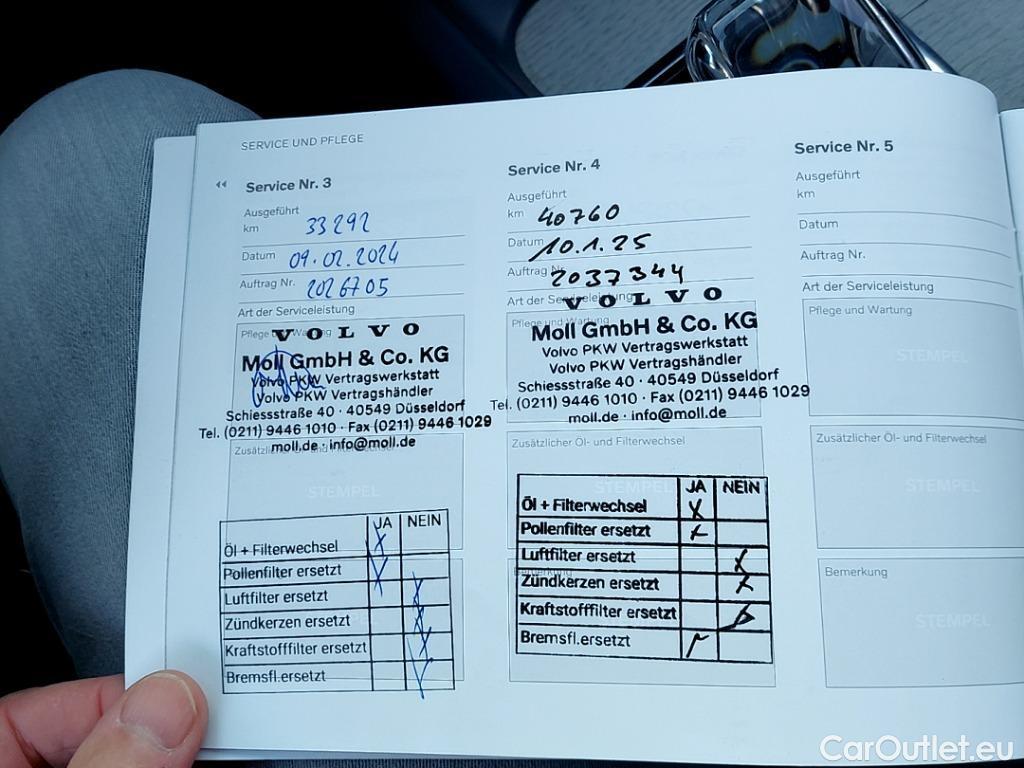 SERVICE UND PFLEGE
Service Nr. 3
Ausgeführt
km 33292
Datum 09.02.2024
Auftrag Nr. 2026705
Art der Serviceleistung
Pflege und Wartung
VOLVO
Moll GmbH & Co. KG
Volvo PKW Vertragswerkstatt
Volvo PKW Vertragshändler
Schiessstraße 40 · 40549 Düsseldorf
Tel. (0211) 9446 1010 · Fax (0211) 9446 1029
moll.de · info@moll.de
Zusätzlicher Öl- und Filterwechsel
STEMPEL
JA NEIN
Öl + Filterwechsel X
Pollenfilter ersetzt X
Luftfilter ersetzt X
Zündkerzen ersetzt X
Kraftstofffilter ersetzt X
Bremsfl.ersetzt
Service Nr. 4
Ausgeführt
km 40760
Datum 10.1.25
Auftrag Nr. 2037344
Art der Serviceleistung
Pflege und Wartung
VOLVO
Moll GmbH & Co. KG
Volvo PKW Vertragswerkstatt
Volvo PKW Vertragshändler
Schiessstraße 40 · 40549 Düsseldorf
Tel. (0211) 9446 1010 · Fax (0211) 9446 1029
moll.de · info@moll.de
Zusätzlicher Öl- und Filterwechsel
STEMPEL
JA NEIN
Öl + Filterwechsel X
Pollenfilter ersetzt X
Luftfilter ersetzt X
Bemerkung
Zündkerzen ersetzt X
Kraftstofffilter ersetzt
Bremsfl.ersetzt
Service Nr. 5
Ausgeführt
km
Datum
Auftrag Nr.
Art der Serviceleistung
Pflege und Wartung
STEMPEL
Zusätzlicher Öl- und Filterwechsel
STEMPEL
Bemerkung
STEMPEL
CarOutlet.eu